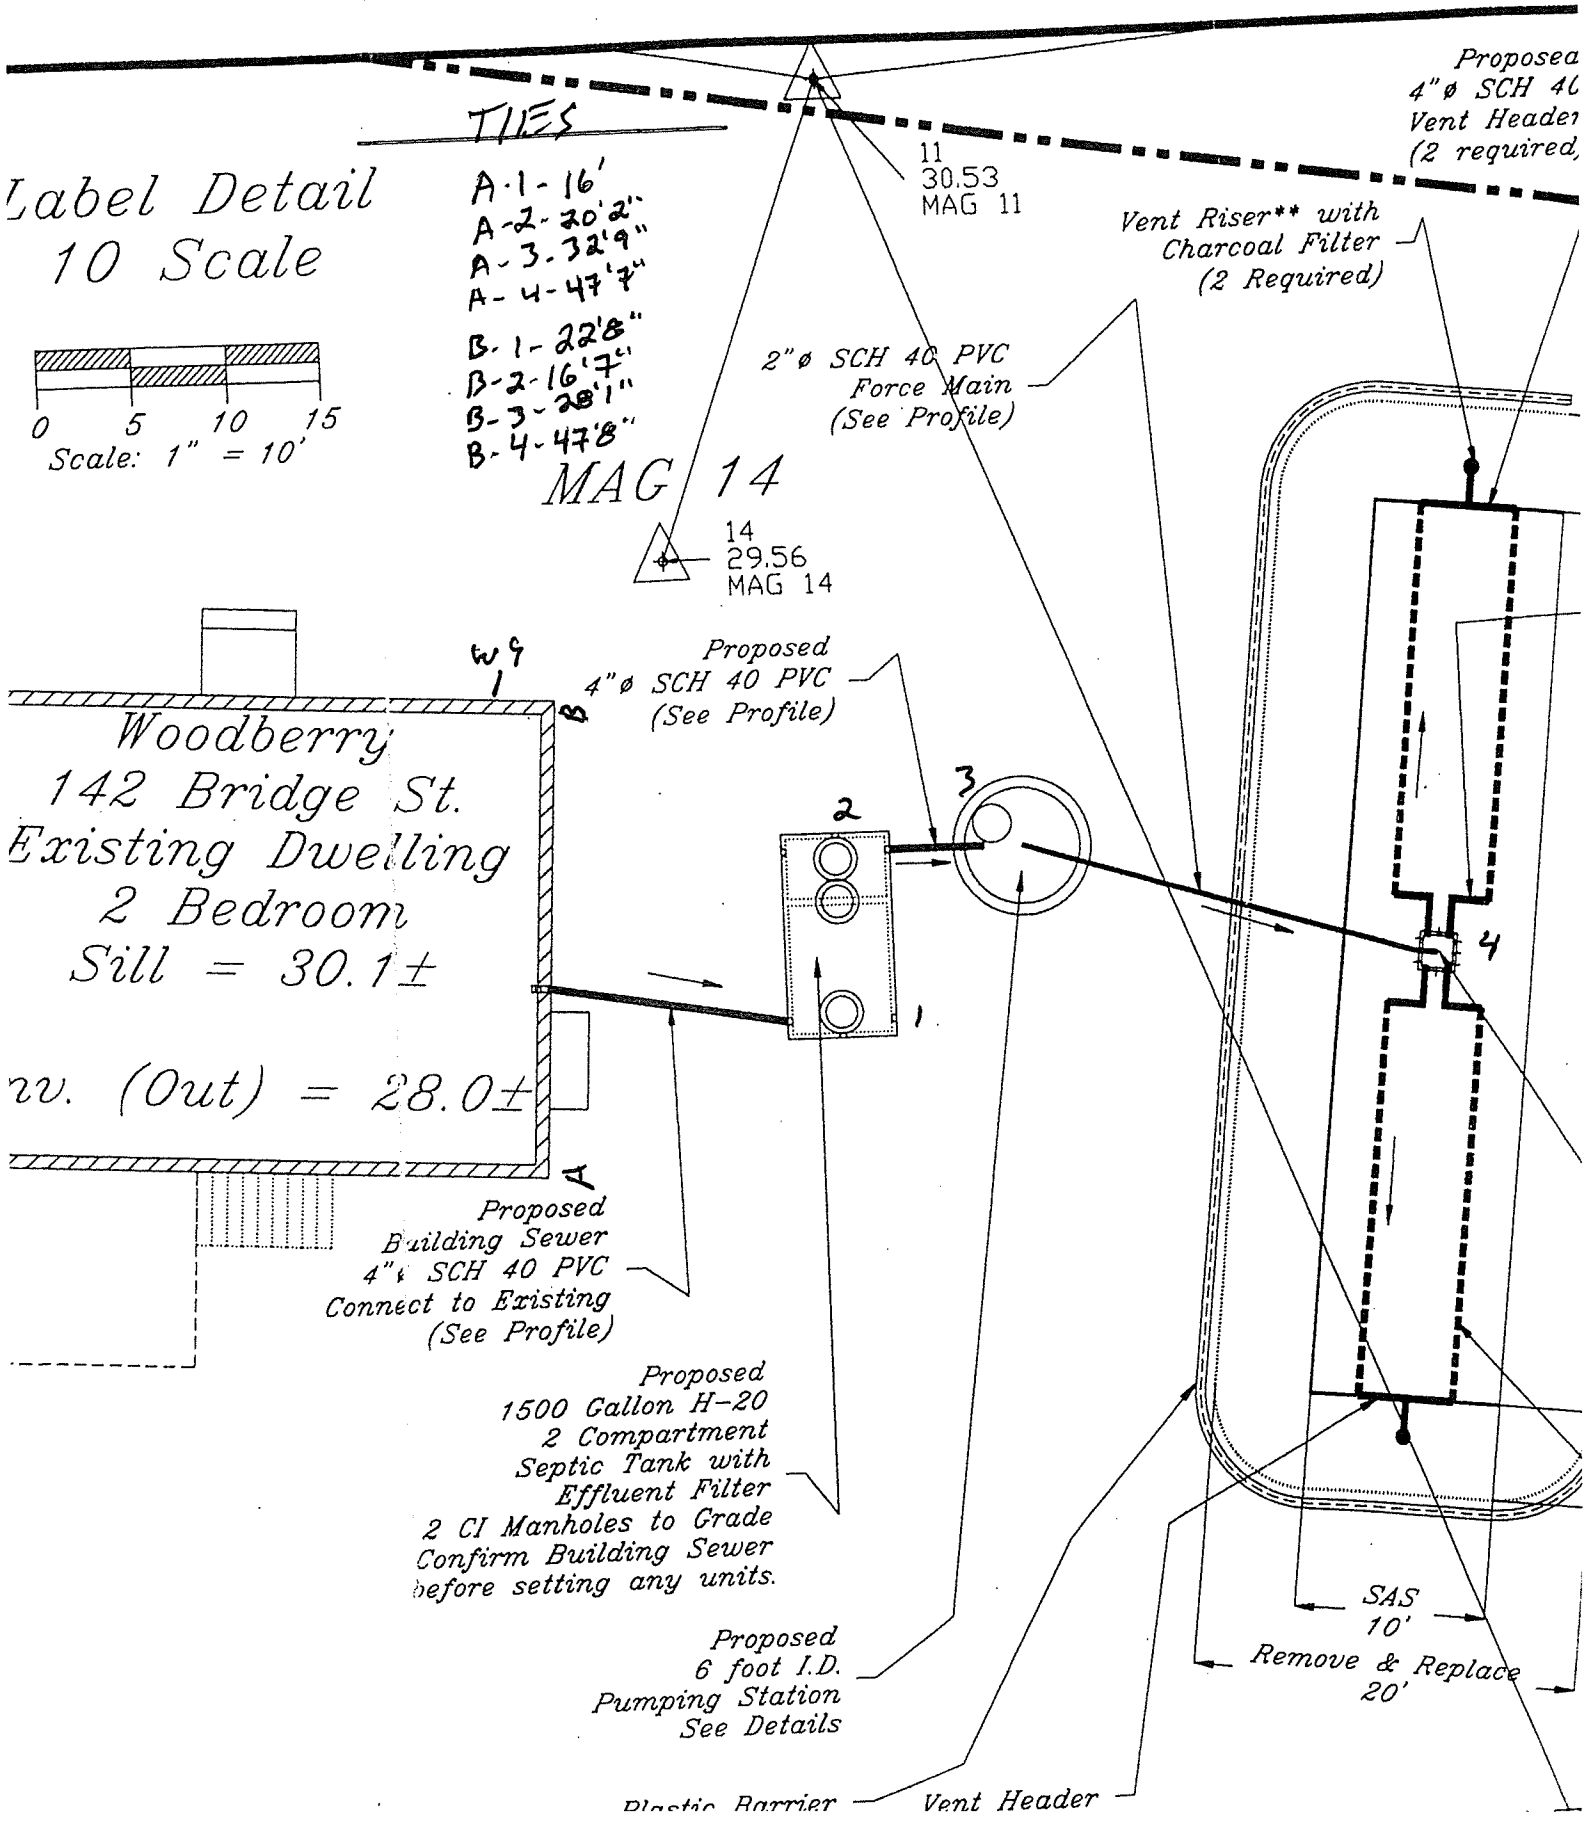 TIES
Label Detail
10 Scale
A-1-16'
A-2-20'2"
A-3-32'9"
A-4-47'7"
B-1-22'8"
B-2-16'7"
B-3-28'1"
B-4-47'8"
0 5 10 15
Scale: 1" = 10'
11
30.53
MAG 11
Proposed
4"ø SCH 40
Vent Header
(2 required)
Vent Riser** with
Charcoal Filter
(2 Required)
2"ø SCH 40 PVC
Force Main
(See Profile)
MAG 14
14
29.56
MAG 14
Proposed
4"ø SCH 40 PVC
(See Profile)
B
Woodberry
142 Bridge St.
Existing Dwelling
2 Bedroom
Sill = 30.1±
nv. (Out) = 28.0±
A
1
2
3
4
Proposed
Building Sewer
4"ø SCH 40 PVC
Connect to Existing
(See Profile)
Proposed
1500 Gallon H-20
2 Compartment
Septic Tank with
Effluent Filter
2 CI Manholes to Grade
Confirm Building Sewer
before setting any units.
Proposed
6 foot I.D.
Pumping Station
See Details
SAS
10'
Remove & Replace
20'
Plastic Barrier
Vent Header